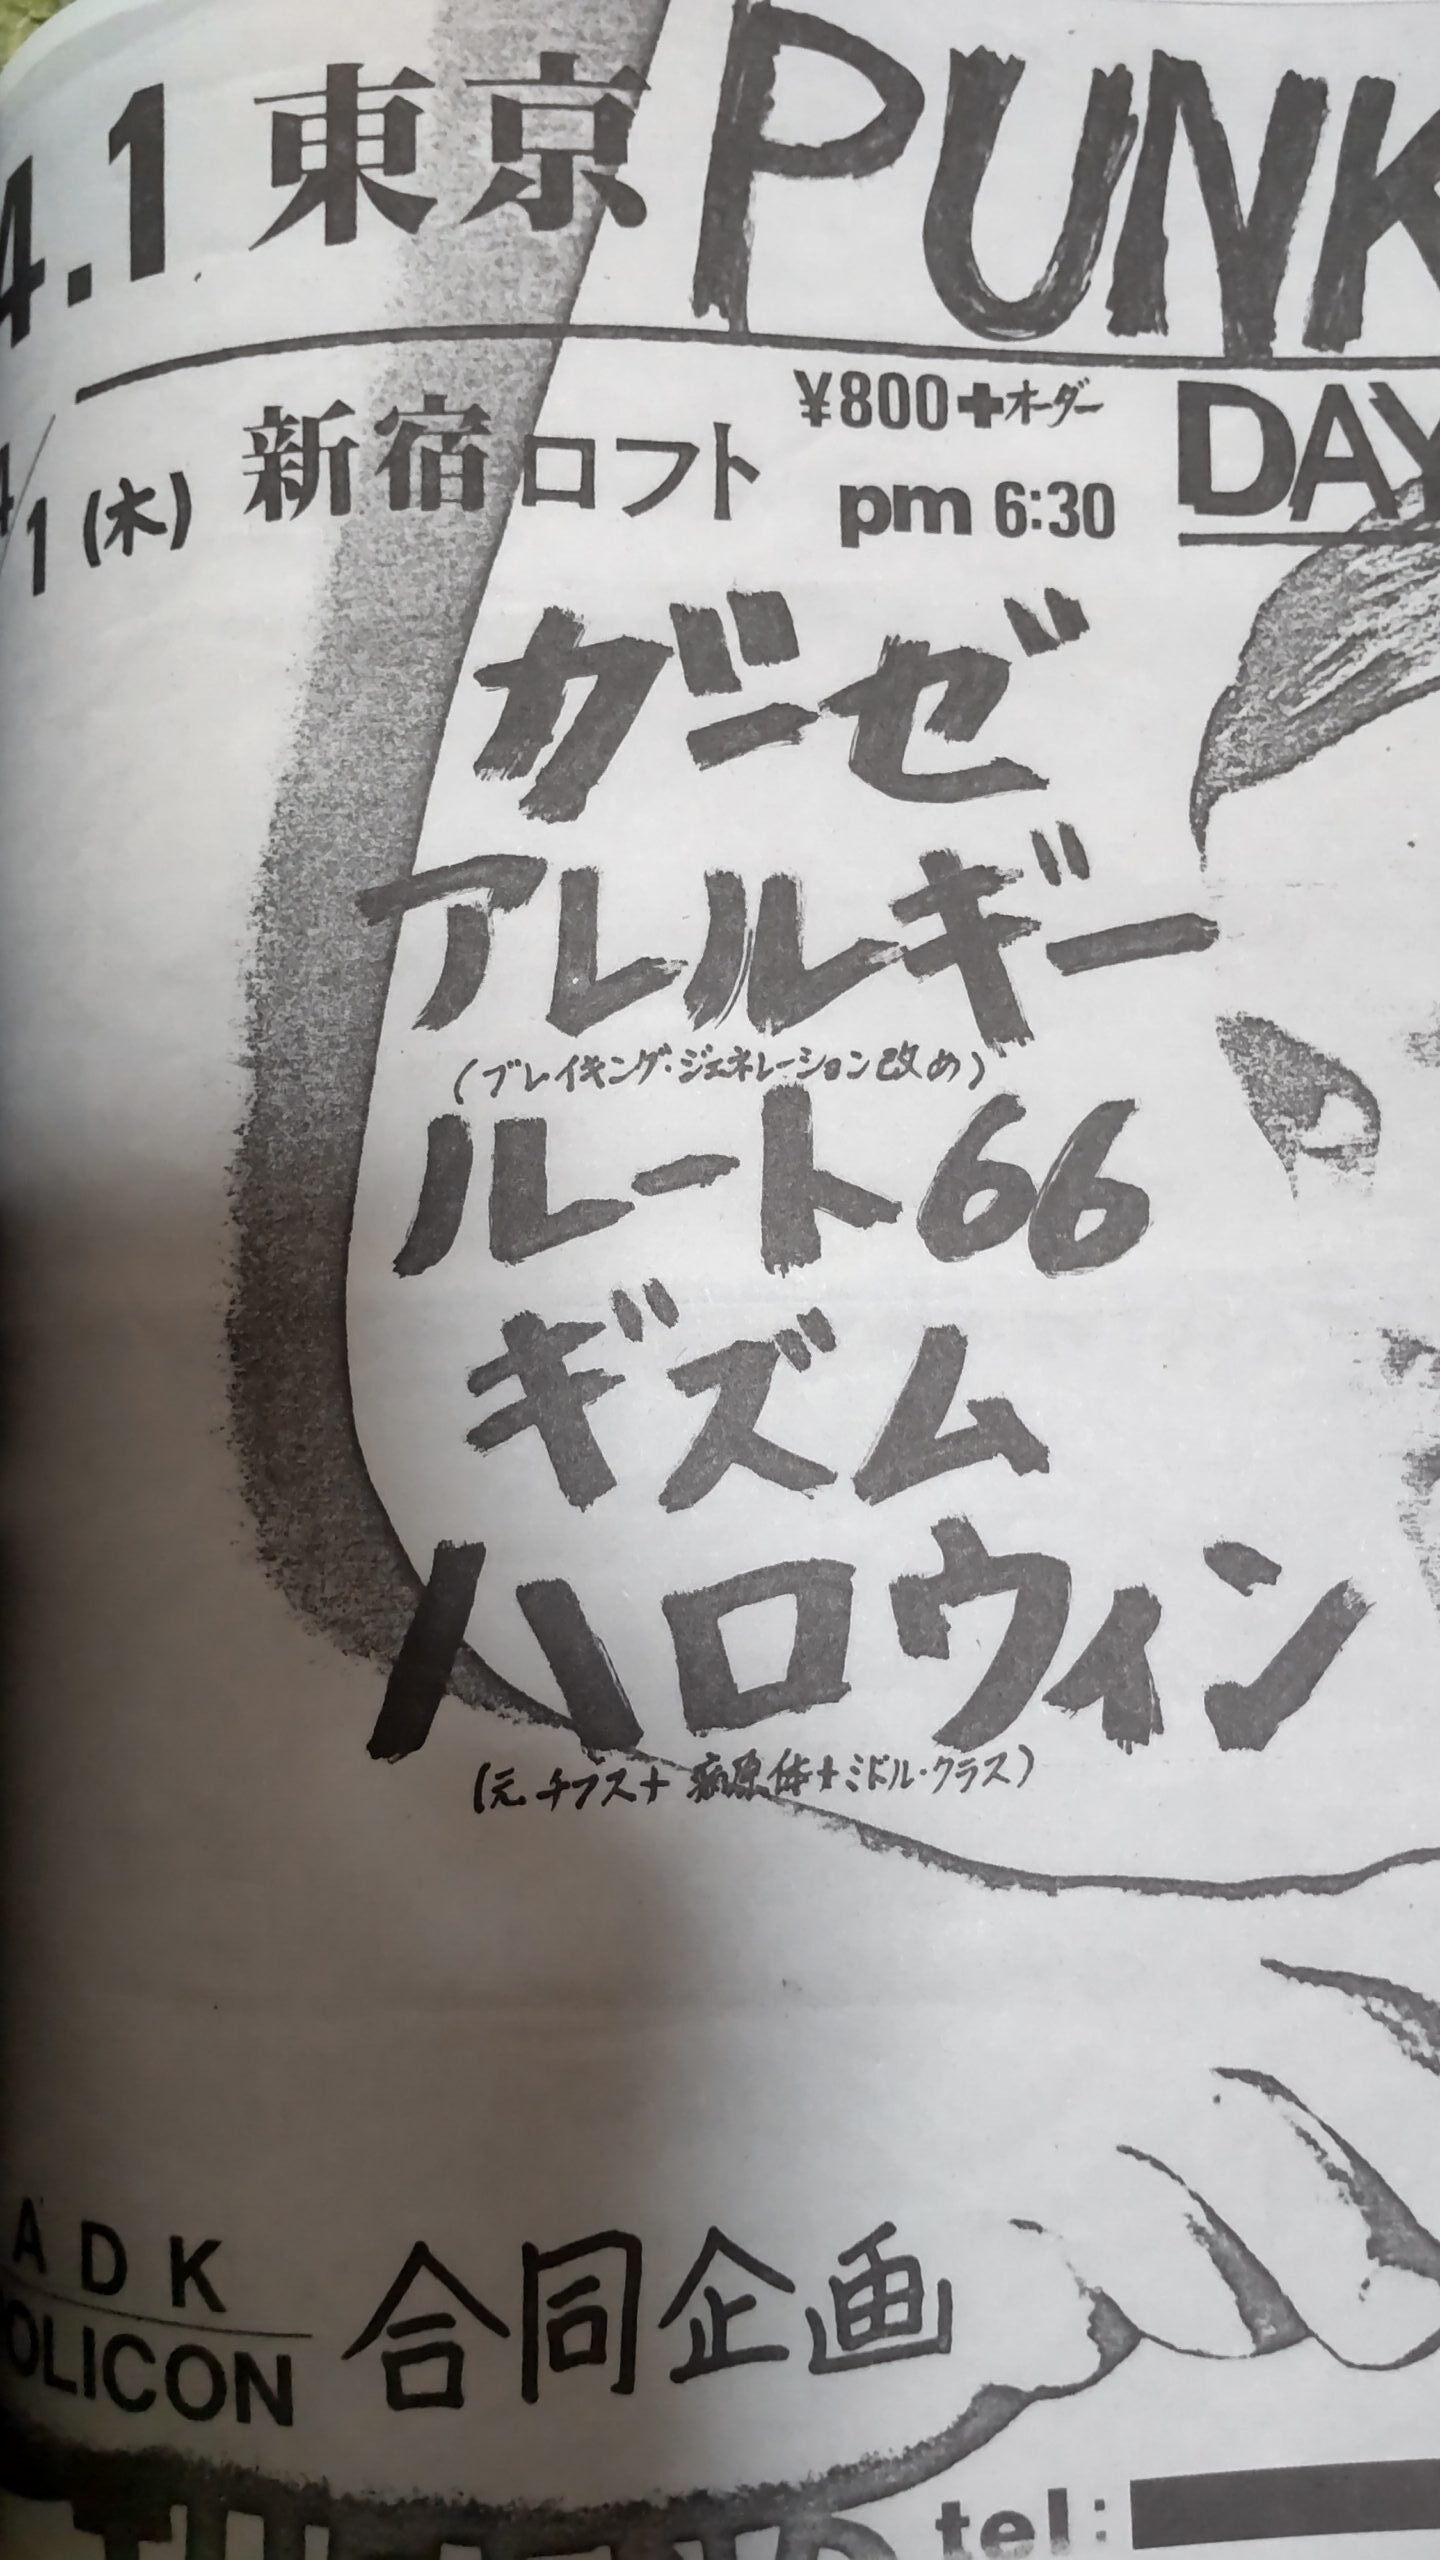 4.1 東京 PUNK
4/1 (木) 新宿ロフト ¥800+オーダー
pm 6:30
DAY
ガーゼ
アレルギー
(ブレイキング・ジェネレーション改め)
ルート66
ギズム
ハロウィン
(元チフス+病原体+ミドル・クラス)
ADK
OLICON
合同企画
tel: